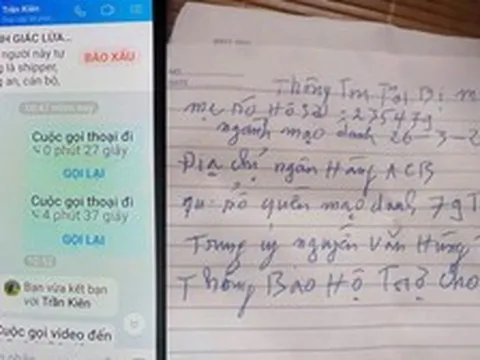 Trần Kiên
NH GIÁC LỪA...
người này tự
g là shipper,
g an, cán bộ,
BÁO XẤU
Cuộc gọi thoại đi
0 phút 27 giây
GỌI LẠI
Cuộc gọi thoại đi
4 phút 37 giây
GỌI LẠI
10:52
Bạn vừa kết bạn
với Trần Kiên
Cuộc gọi video đến
Thông Tin Tại
Số Hồ Sơ : 235479
ngành mạo danh 26-3-2
Địa chỉ ngân Hàng ACB
số quyển mạo danh 79T
Trung úy nguyễn Văn Hùng
Thông Báo Hộ Trợ cho